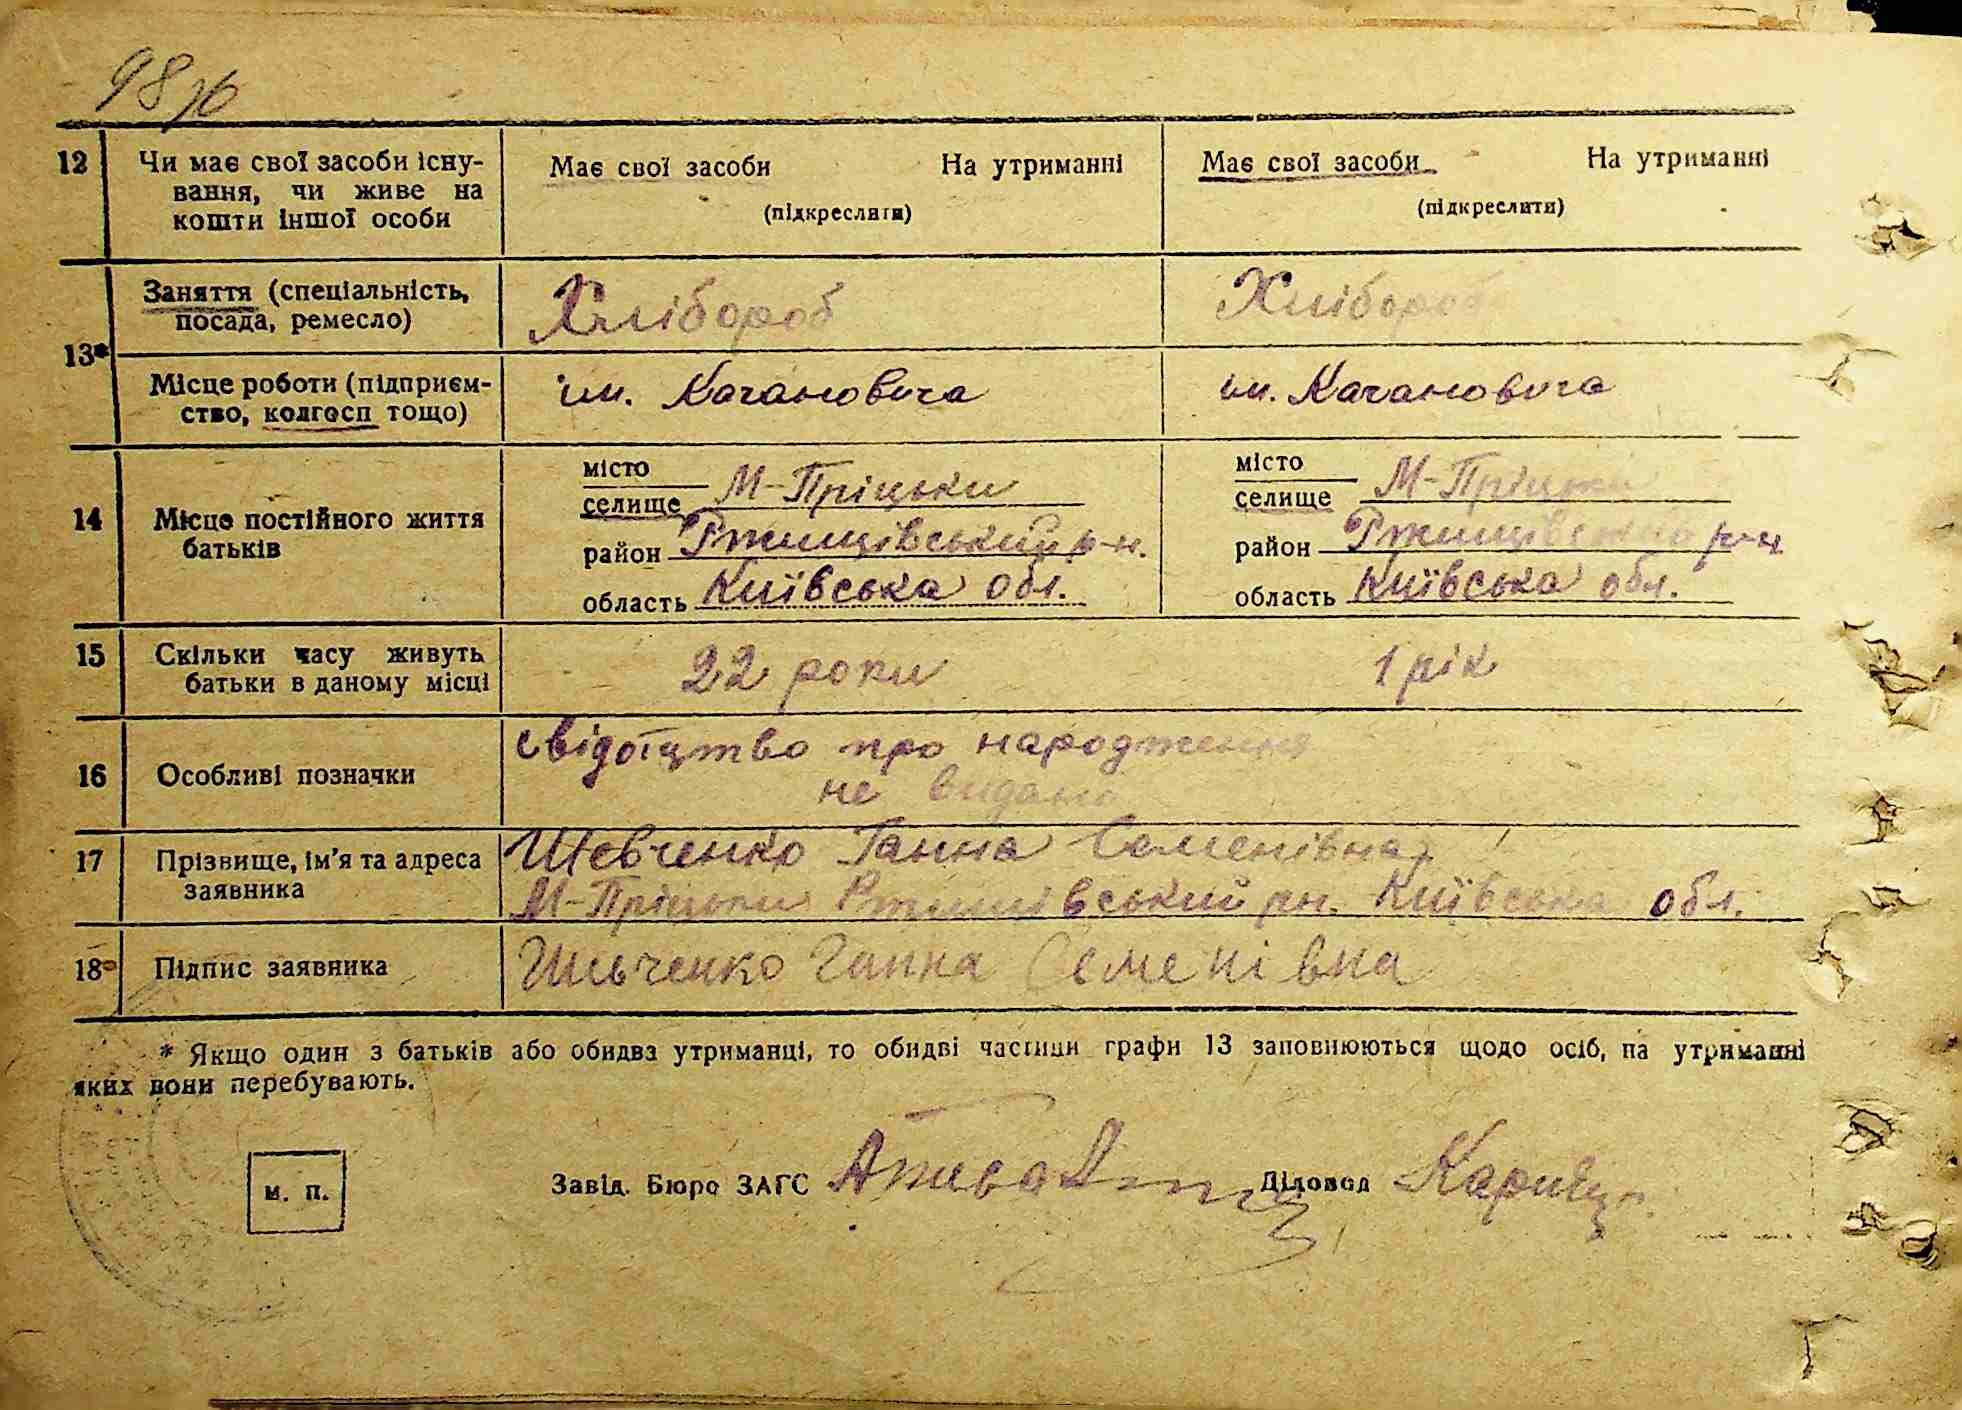 98
12 Чи має свої засоби існу- Має свої засоби На утриманні Має свої засоби На утриманні
вання, чи живе на
кошти іншої особи (підкреслити) (підкреслити)
13* Заняття (спеціальність, посада, ремесло) Хлібороб Хлібороб
Місце роботи (підприєм- ім. Качановича ім. Качановича
ство, колгосп тощо)
14 Місце постійного життя батьків
місто
селище М-Пріцьки
район Ржищівський р-н.
область Київська обл.
місто
селище М-Пріцьки
район Ржищівського р-н
область Київська обл.
15 Скільки часу живуть 22 роки 1 рік
батьки в даному місці
16 Особливі позначки свідоцтво про народження
не видано
17 Прізвище, ім'я та адреса Шевченко Ганна Семенівна
заявника М-Пріцьки Ржищівський рн. Київська обл.
18 Підпис заявника Шевченко Ганна Семенівна
* Якщо один з батьків або обидва утриманці, то обидві частини графи 13 заповнюються щодо осіб, на утриманні
яких вони перебувають.
м. п. Завід. Бюро ЗАГС Діловод